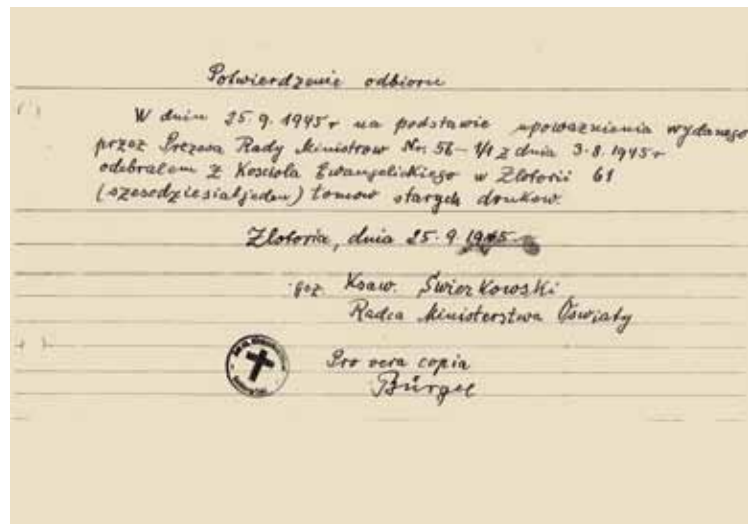 Potwierdzenie odbioru
W dniu 25.9.1945 r na podstawie upoważnienia wydanego
przez Prezesa Rady Ministrow Nr. 56- 1/1 z dnia 3.8.1945 r
odebrałem z Kosciola Ewangelickiego w Zlotorii 61
(szescdziesiatjeden) tomow starych drukow.
Zlotoria, dnia 25.9.1945.
Ksaw. Świerkowski
Radca Ministerstwa Oświaty
Pro vera copia
Bürgel